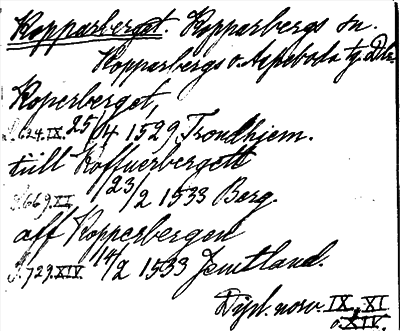 Kopparberget. Kopparbergs sn.
Kopparbergs o. Aspeboda tg. Dlr
Koperberget,
S.624.IX. 25/4 1529 Trondhjem.
tiill Koffuerbergett
S.669.XI. 23/2 1533 Berg.
aff Kopperbergen
S.729.XIV. 14/2 1533 Jemtland.
Dipl. norv. IX, XI
o. XIV.